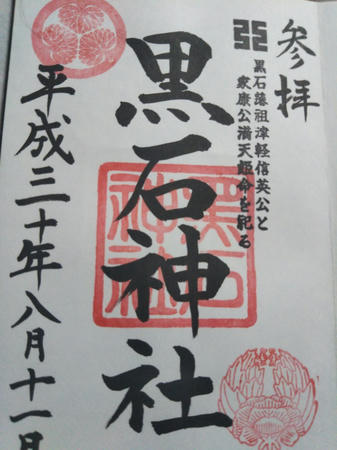 参拝
黒石藩祖津軽信英公と
家康公満天姫命を祀る
黒石神社
黒石
神社
平成三十年八月十一日